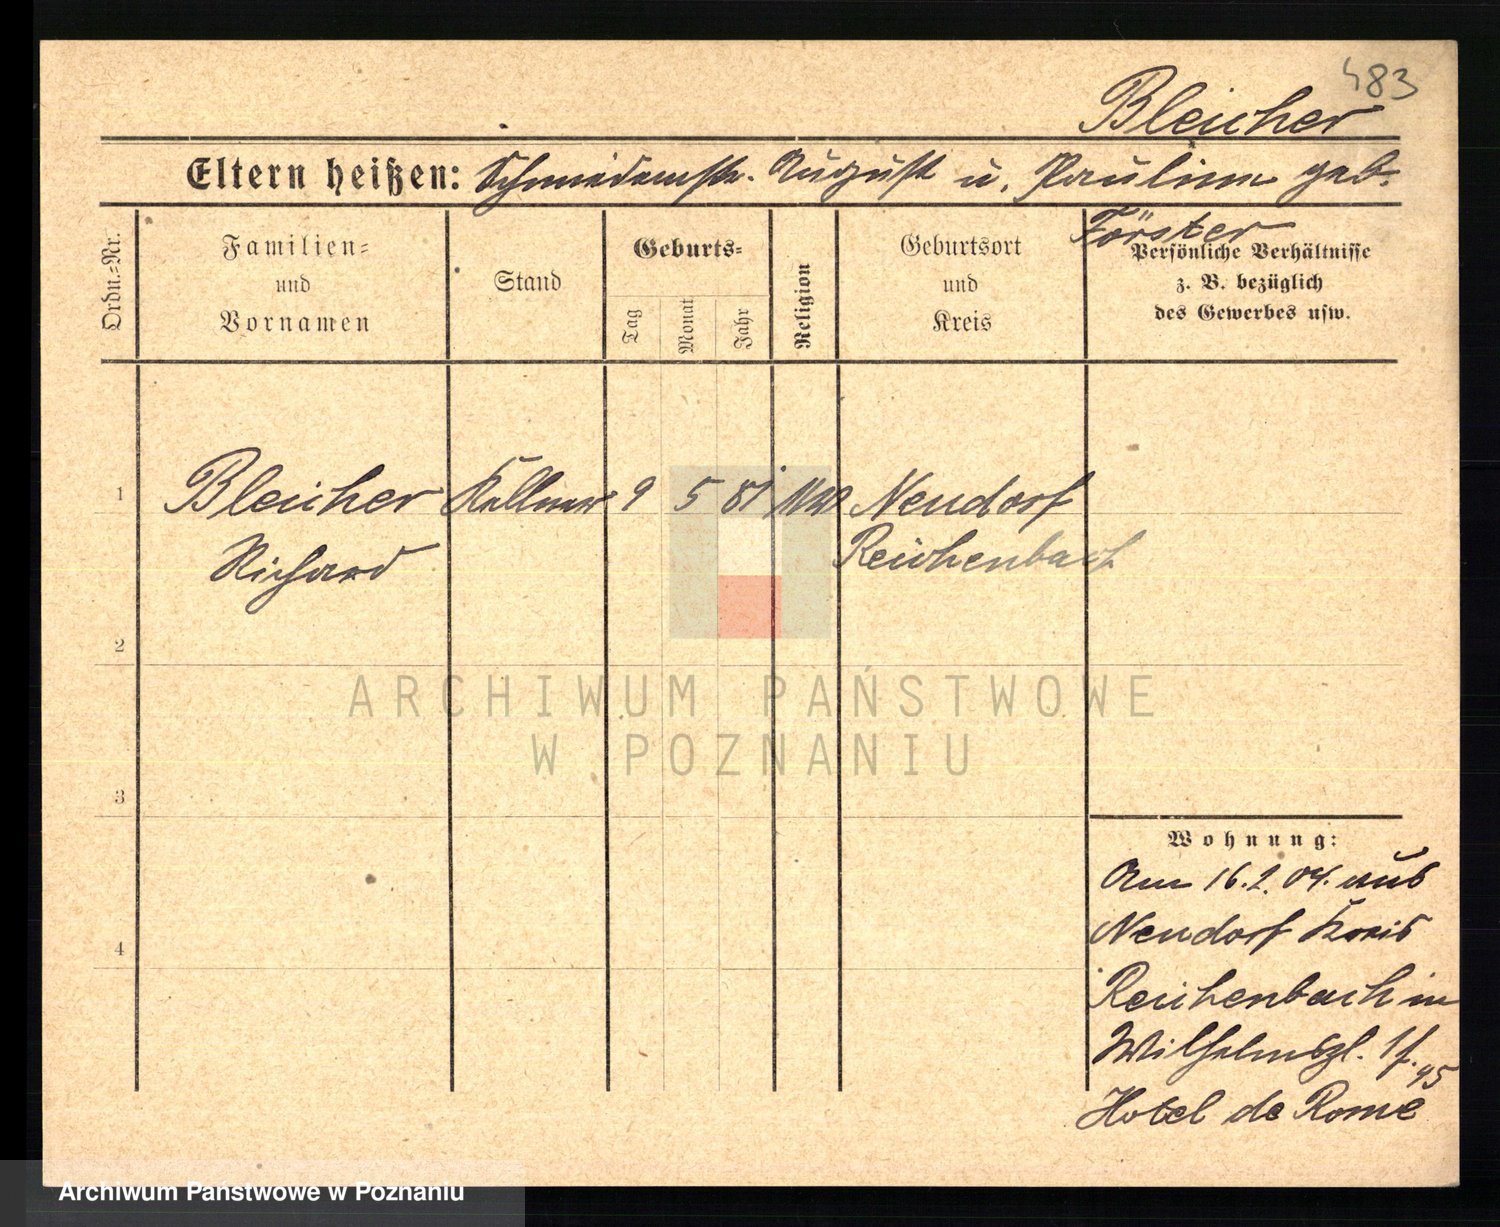 483
Bleicher
Eltern heißen: Schmiedemstr. August u. Pauline geb.
Förster
Ordn.=Nr.
Familien=
und
Vornamen
Stand
Geburts=
Tag
Monat
Jahr
Religion
Geburtsort
und
Kreis
Persönliche Verhältnisse
z. B. bezüglich
des Gewerbes usw.
1
Bleicher Kellner 9 5 81 Neudorf
Richard Reichenbach
2
ARCHIWUM PAŃSTWOWE
W POZNANIU
3
Wohnung:
Am 16.2.04. aus
Neudorf Kreis
4
Reichenbach in
Wilhelmspl. 1 f.
95
Hotel de Rome
Archiwum Państwowe w Poznaniu